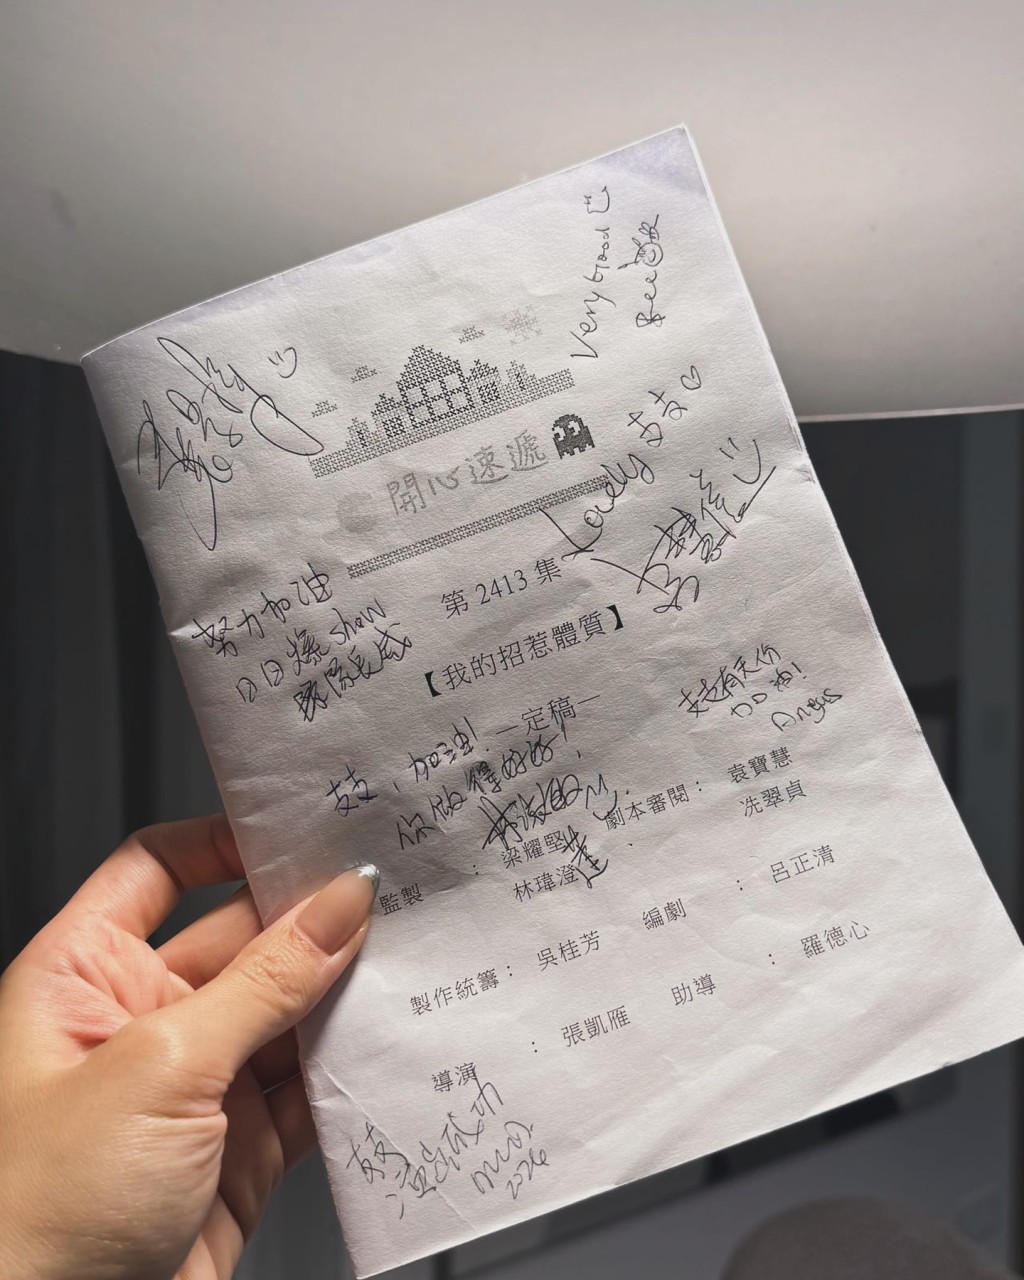 Very Good
Bee
開心速遞
Lovely 支支
第 2413 集
努力加油
日日爆 show
【我的招惹體質】
支支有天份
加油!
Angus
—定稿—
支支,加油!
你做得好好!
監製 : 梁耀堅
林瑋澄
劇本審閱 : 袁寶慧
冼翠貞
製作統籌 : 吳桂芳
編劇 : 呂正清
導演 : 張凱雁
助導 : 羅德心
支支
演出成功
2026